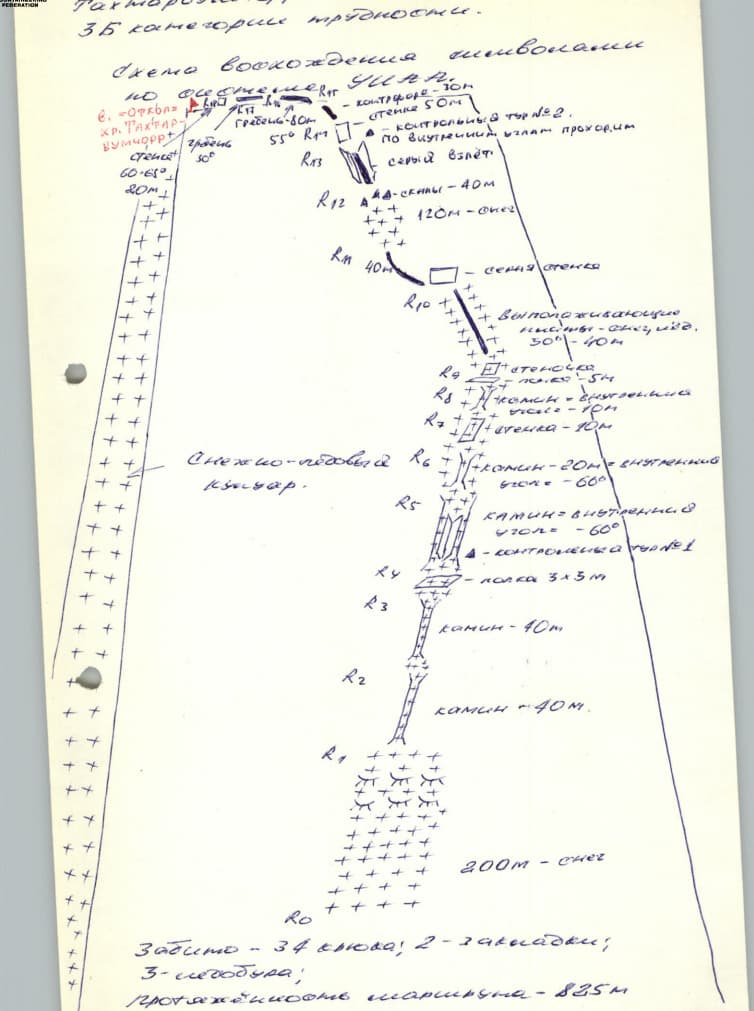 FEDERATION
3Б категории трудности.
Схема восхождения символами
по системе УИАА.
в. "Откол"
хр. Тахтар-
вумчорр
стенка
60-65°
20м
гребень
30°
R17
R16
гребень-80м
55°
R15
контрфорс - 30м
стенка 50м
- контрольный тур №2.
по внутренним углам проходим
R13
серый взлёт
R12
-скалы - 40м
120м - снег
R11
40м
- серая стенка
R10
выполаживающие
плиты - снег, лёд.
30° - 40м
R9
стеночка
- полка - 5м
R8
камин = внутренний
угол = - 10м
R7
стенка - 10м
R6
камин - 20м = внутренний
угол = - 60°
Снежно-ледовый
кулуар.
R5
камин = внутренний
угол = - 60°
- контрольный тур №1
R4
- полка 3х3м
R3
камин - 40м
R2
камин - 40м.
R1
200м - снег
R0
Забито - 34 крюка; 2 - закладки;
3 - ледобура;
Протяжённость маршрута - 825м